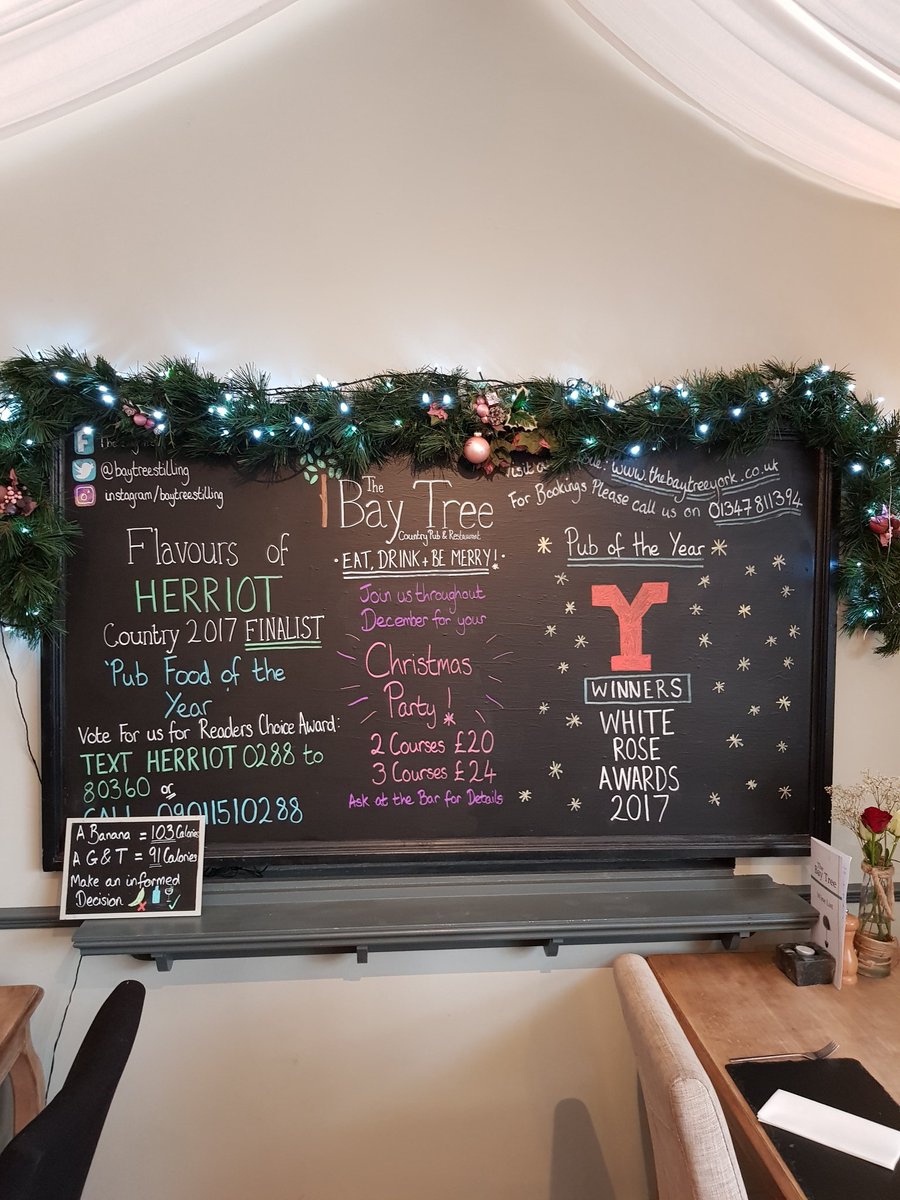 @baytreestilling
instagram/baytreestilling
Flavours of
HERRIOT
Country 2017 FINALIST
'Pub Food of the
Year'
Vote For us for Readers Choice Award:
TEXT HERRIOT 0288 to
80360 or
CALL 09011510288
The
Bay Tree
Country Pub & Restaurant
·EAT, DRINK + BE MERRY!·
Join us throughout
December for your
Christmas
Party!
2 Courses £20
3 Courses £24
Ask at the Bar for Details
www.thebaytreeyork.co.uk
For Bookings Please call us on 01347 811394
Pub of the Year
Y
WINNERS
WHITE
ROSE
AWARDS
2017
A Banana = 103 Calories
A G & T = 91 Calories
Make an informed
Decision
The
Bay Tree